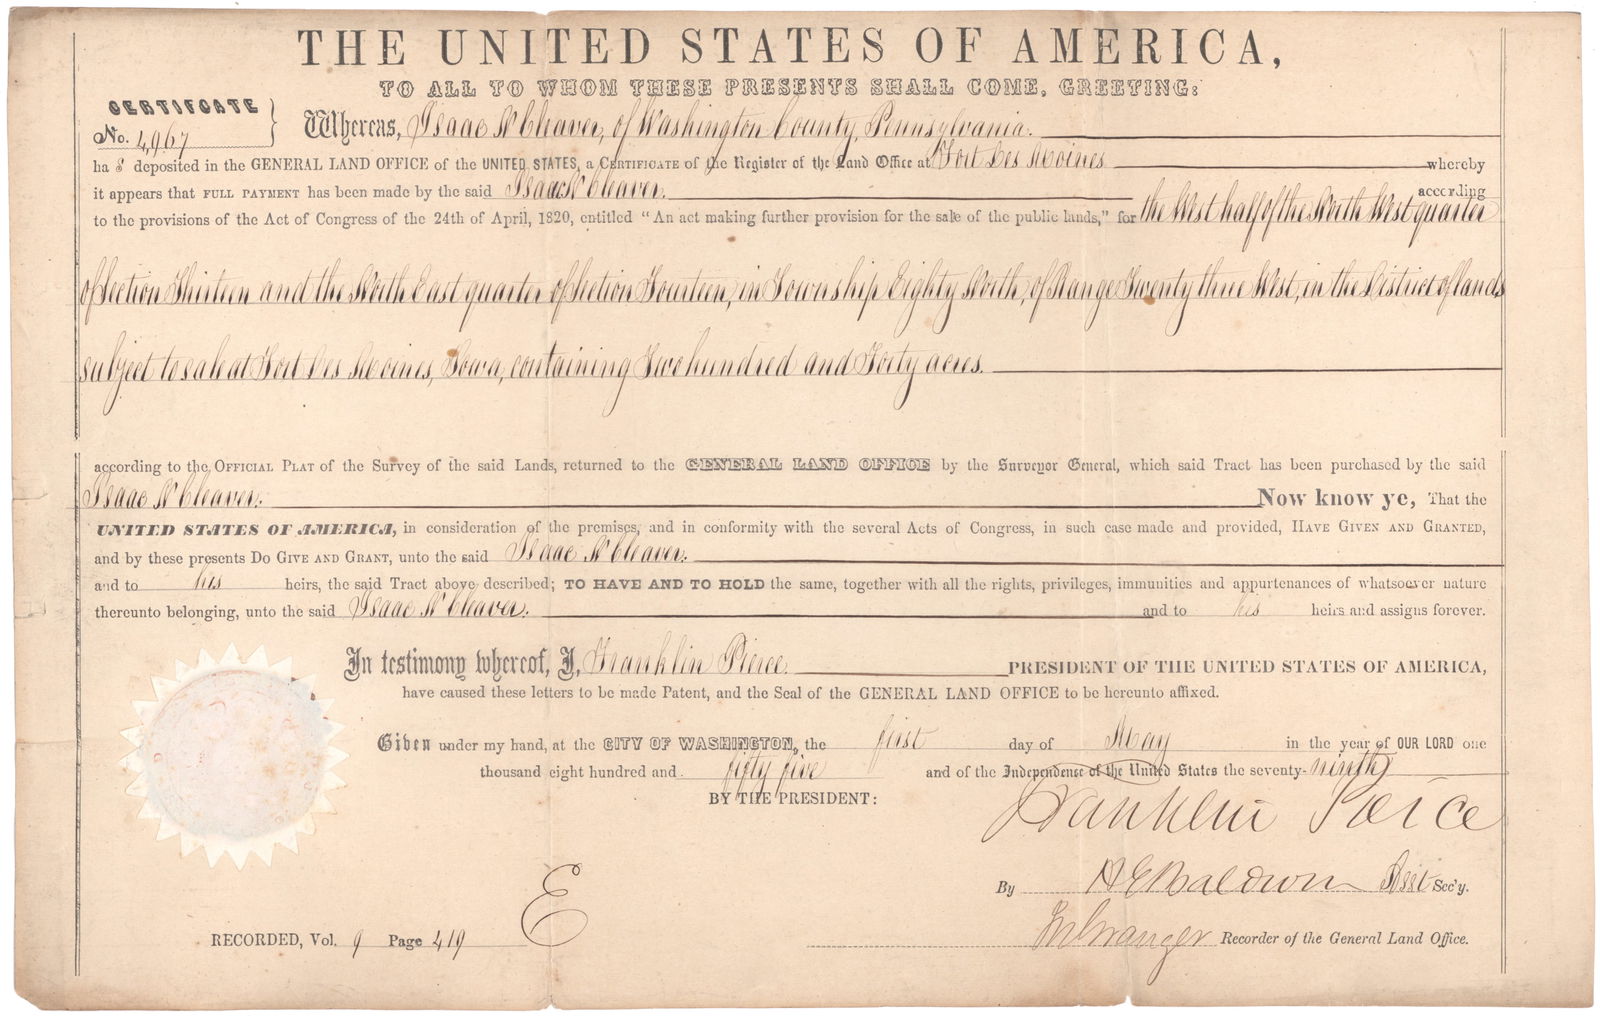 THE UNITED STATES OF AMERICA,
TO ALL TO WHOM THESE PRESENTS SHALL COME, GREETING:
CERTIFICATE
No. 4,967
Whereas, Isaac N Cleaver, of Washington County, Pennsylvania.
ha s deposited in the GENERAL LAND OFFICE of the UNITED STATES, a CERTIFICATE of the Register of the Land Office at Fort Des Moines whereby
it appears that FULL PAYMENT has been made by the said Isaac N Cleaver. according
to the provisions of the Act of Congress of the 24th of April, 1820, entitled "An act making further provision for the sale of the public lands," for the West half of the North West quarter
of Section Thirteen and the North East quarter of Section Fourteen, in Township Eighty North, of Range Twenty three West, in the District of lands
subject to sale at Fort Des Moines, Iowa, containing Two hundred and Forty acres.
according to the OFFICIAL PLAT of the Survey of the said Lands, returned to the GENERAL LAND OFFICE by the Surveyor General, which said Tract has been purchased by the said
Isaac N Cleaver. Now know ye, That the
UNITED STATES OF AMERICA, in consideration of the premises, and in conformity with the several Acts of Congress, in such case made and provided, HAVE GIVEN AND GRANTED,
and by these presents DO GIVE AND GRANT, unto the said Isaac N Cleaver.
and to his heirs, the said Tract above described; TO HAVE AND TO HOLD the same, together with all the rights, privileges, immunities and appurtenances of whatsoever nature
thereunto belonging, unto the said Isaac N Cleaver. and to his heirs and assigns forever.
In testimony whereof, I, Franklin Pierce. PRESIDENT OF THE UNITED STATES OF AMERICA,
have caused these letters to be made Patent, and the Seal of the GENERAL LAND OFFICE to be hereunto affixed.
Given under my hand, at the CITY OF WASHINGTON, the first day of May in the year of OUR LORD one
thousand eight hundred and fifty five and of the Independence of the United States the seventy-ninth
BY THE PRESIDENT: Franklin Pierce
By H E Baldwin Asst Sec'y.
RECORDED, Vol. 9 Page 419 E Granger Recorder of the General Land Office.